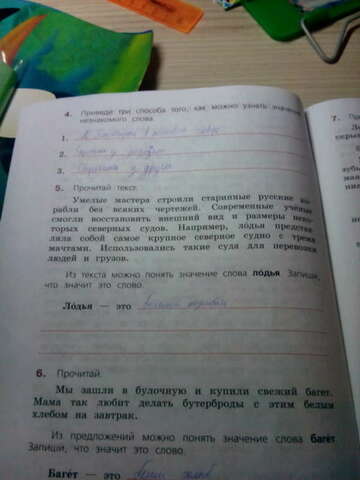 4. Приведи три способа того, как можно узнать значение
незнакомого слова.
1.
2.
3. Спросить у друга
5. Прочитай текст.
Умелые мастера строили старинные русские ко-
рабли без всяких чертежей. Современные учёные
смогли восстановить внешний вид и размеры неко-
торых северных судов. Например, ло́дьи представ-
ляла собой самое крупное северное судно с тремя
мачтами. Использовались такие суда для перевозки
людей и грузов.
Из текста можно понять значение слова ло́дья. Запиши,
что значит это слово.
Ло́дья — это большой корабль
6. Прочитай.
Мы зашли в булочную и купили свежий багет.
Мама так любит делать бутерброды с этим белым
хлебом на завтрак.
Из предложений можно понять значение слова баге́т
Запиши, что значит это слово.
Баге́т — это белый хлеб
7.